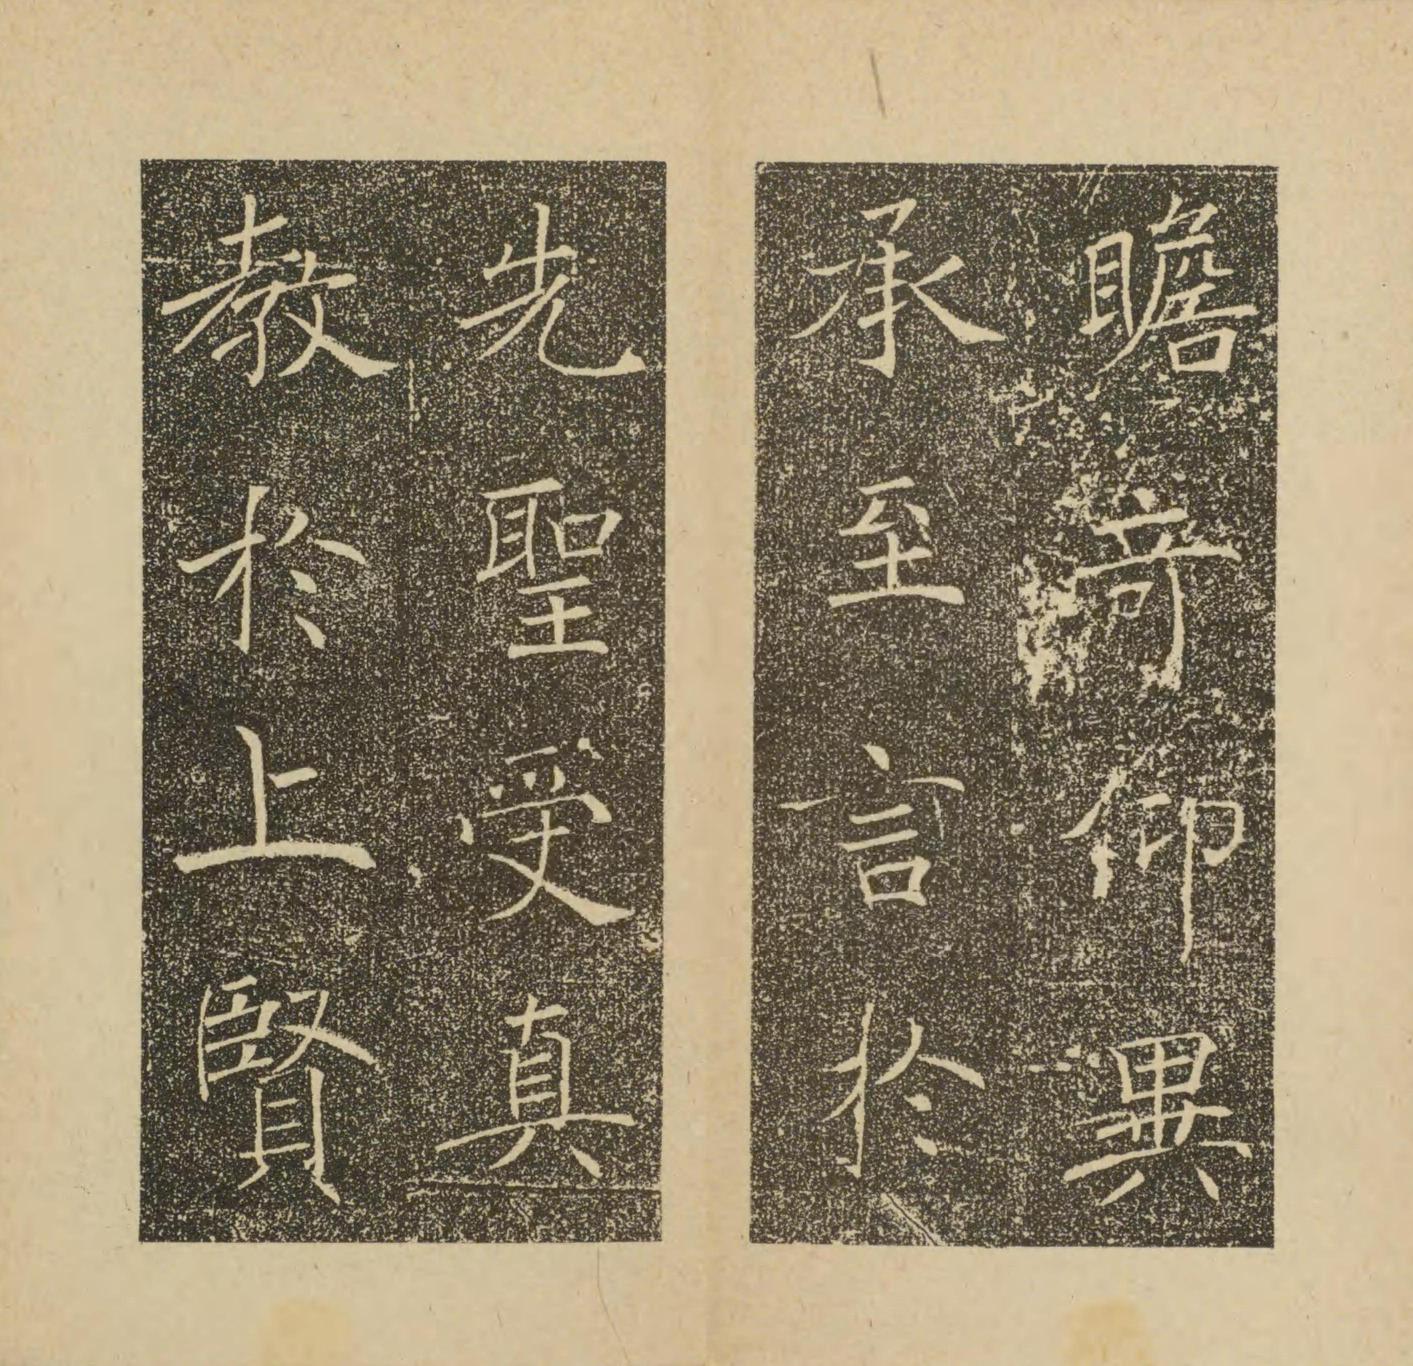 瞻奇仰異
承至言於
先聖受真
教於上賢